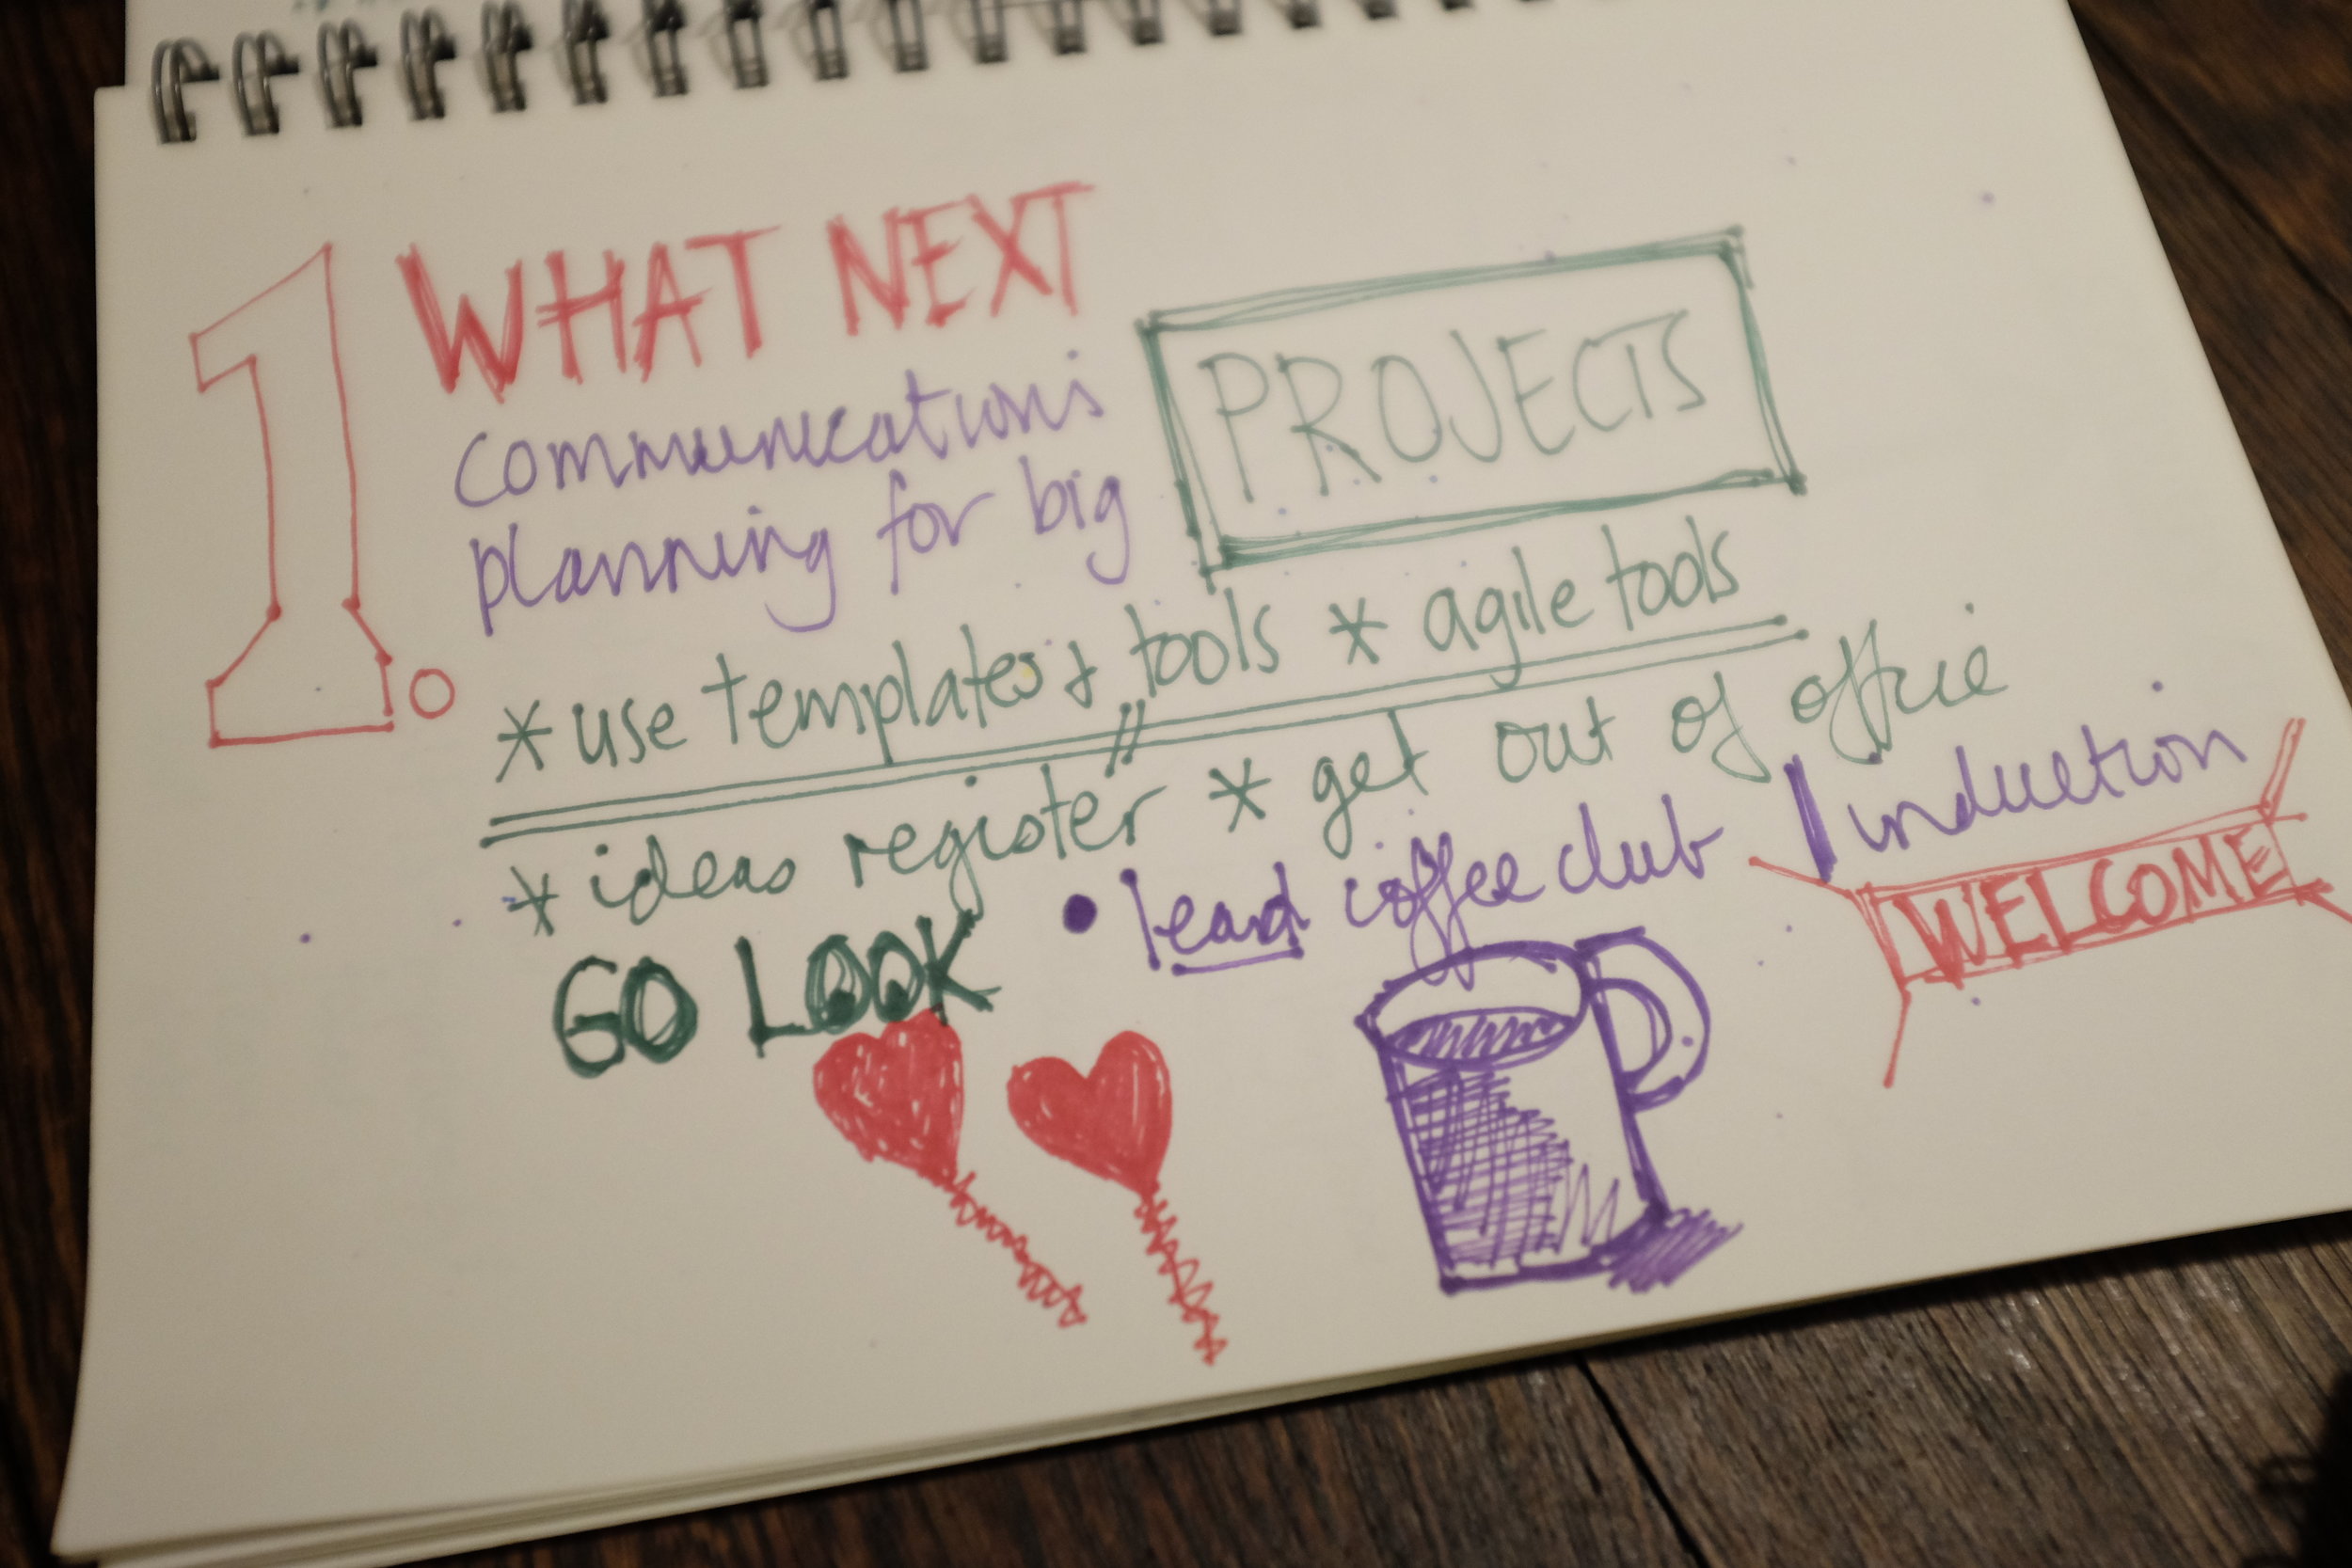 1. WHAT NEXT
communications
planning for big PROJECTS
* use templates & tools * agile tools
* ideas register * get out of office
GO LOOK • lead coffee club | induction
WELCOME